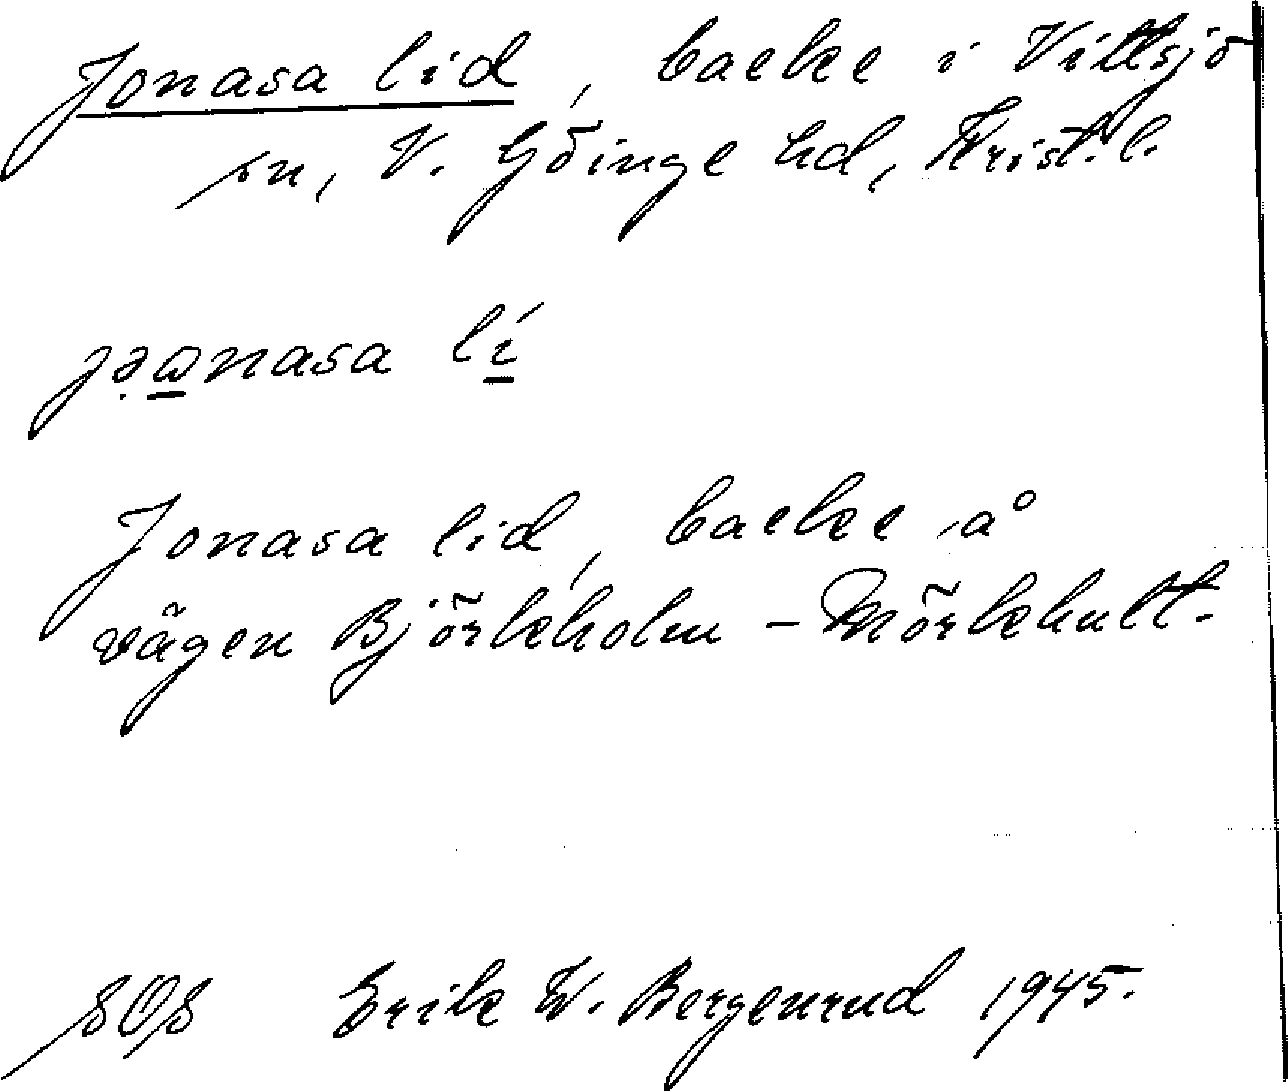 Jonasa lid, backe i Vittsjö
sn, V. Göinge hd, Krist. l.
jə̣ω̲nasa lí̲
Jonasa lid, backe å
vägen Björkholm – Mörkhult.
SOS Erik W. Bergenrud 1945.